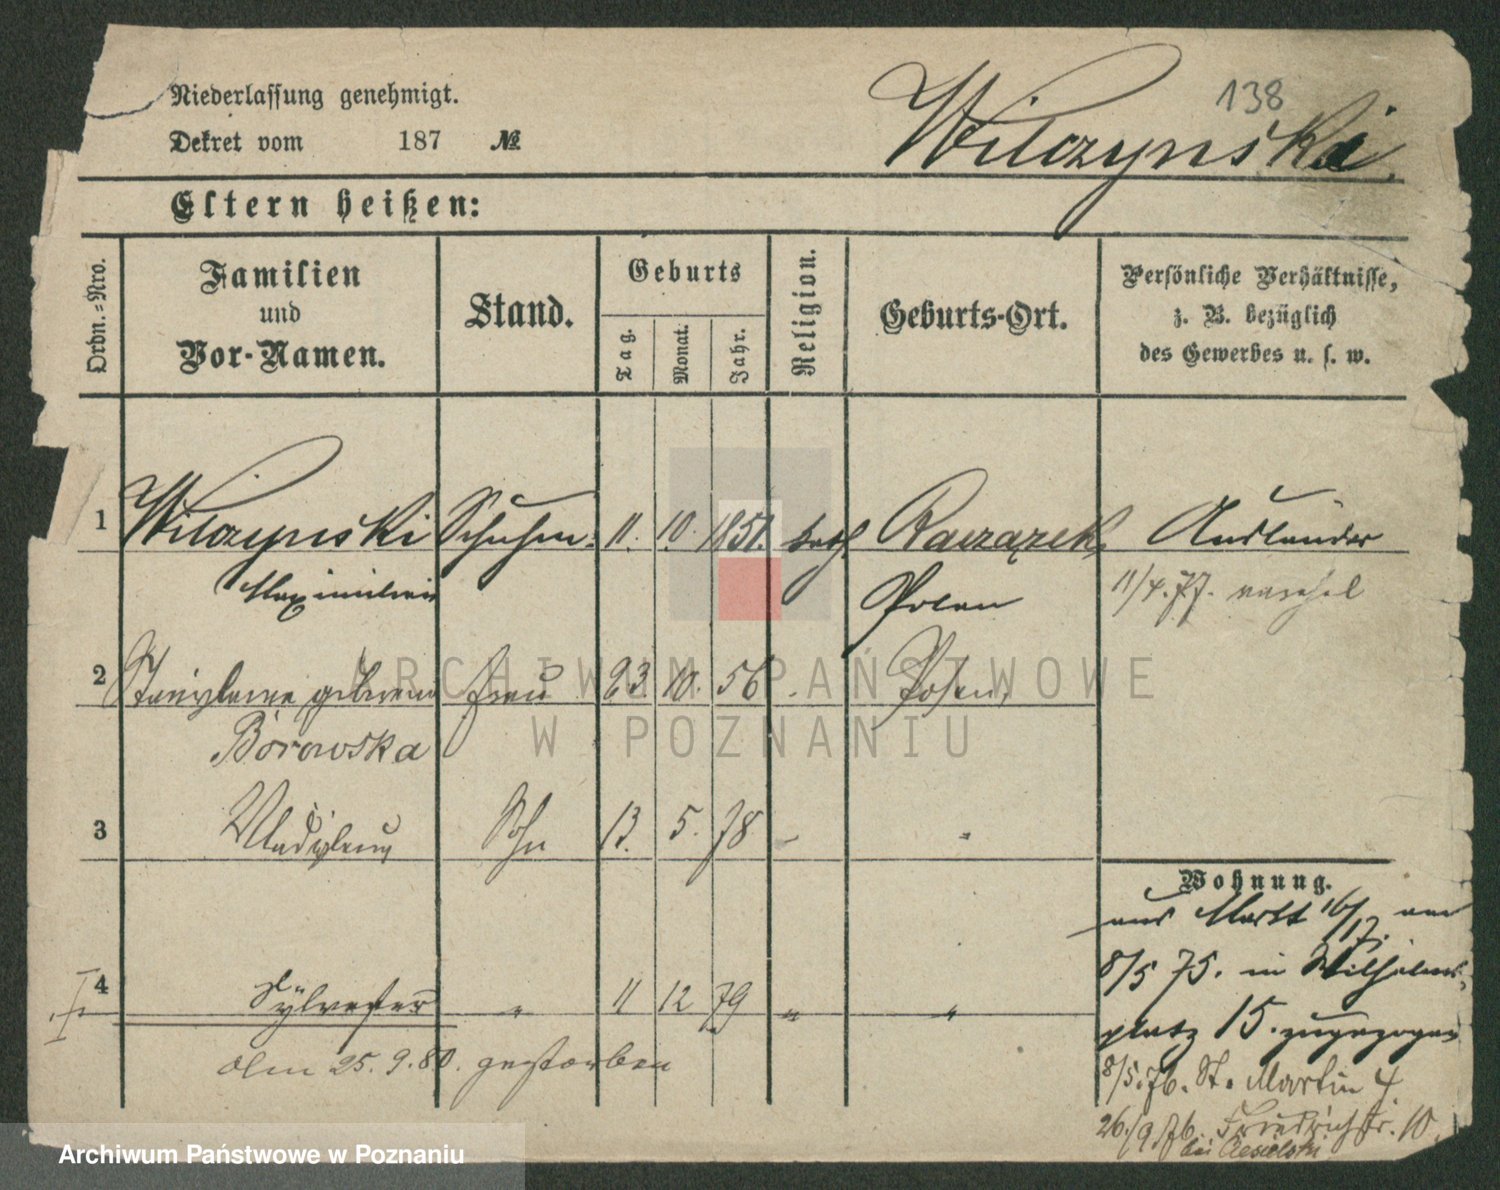 138
Niederlassung genehmigt.
Dekret vom 187 №
Wilczynski
Eltern heißen:
Ordm.=Nro.
Familien und Vor-Namen.
Stand.
Geburts
Tag.
Monat.
Jahr.
Religion.
Geburts-Ort.
Persönliche Verhältnisse,
z. B. bezüglich
des Gewerbes u. s. w.
1 Wilczynski Schuhm. 11. 10. 1851. kath. Raczązek Ausländer
Maximilian Polen 11/4.77.
2 Stanislawa geborene Frau 23 10. 56 Posen,
Borowska
3 Wladislaus Sohn 13. 5. 78 - "
Wohnung.
aus Markt 16/17. am
8/5 75. in Wilhelms-
4 Sylvester " 11 12 79 " "
platz 15. zugezogen
Am 25.9.80. gestorben
8/5.76. St. Martin 4
26./9.76. Friedrichstr. 10.
bei Ciesielski
ARCHIWUM PAŃSTWOWE
W POZNANIU
Archiwum Państwowe w Poznaniu